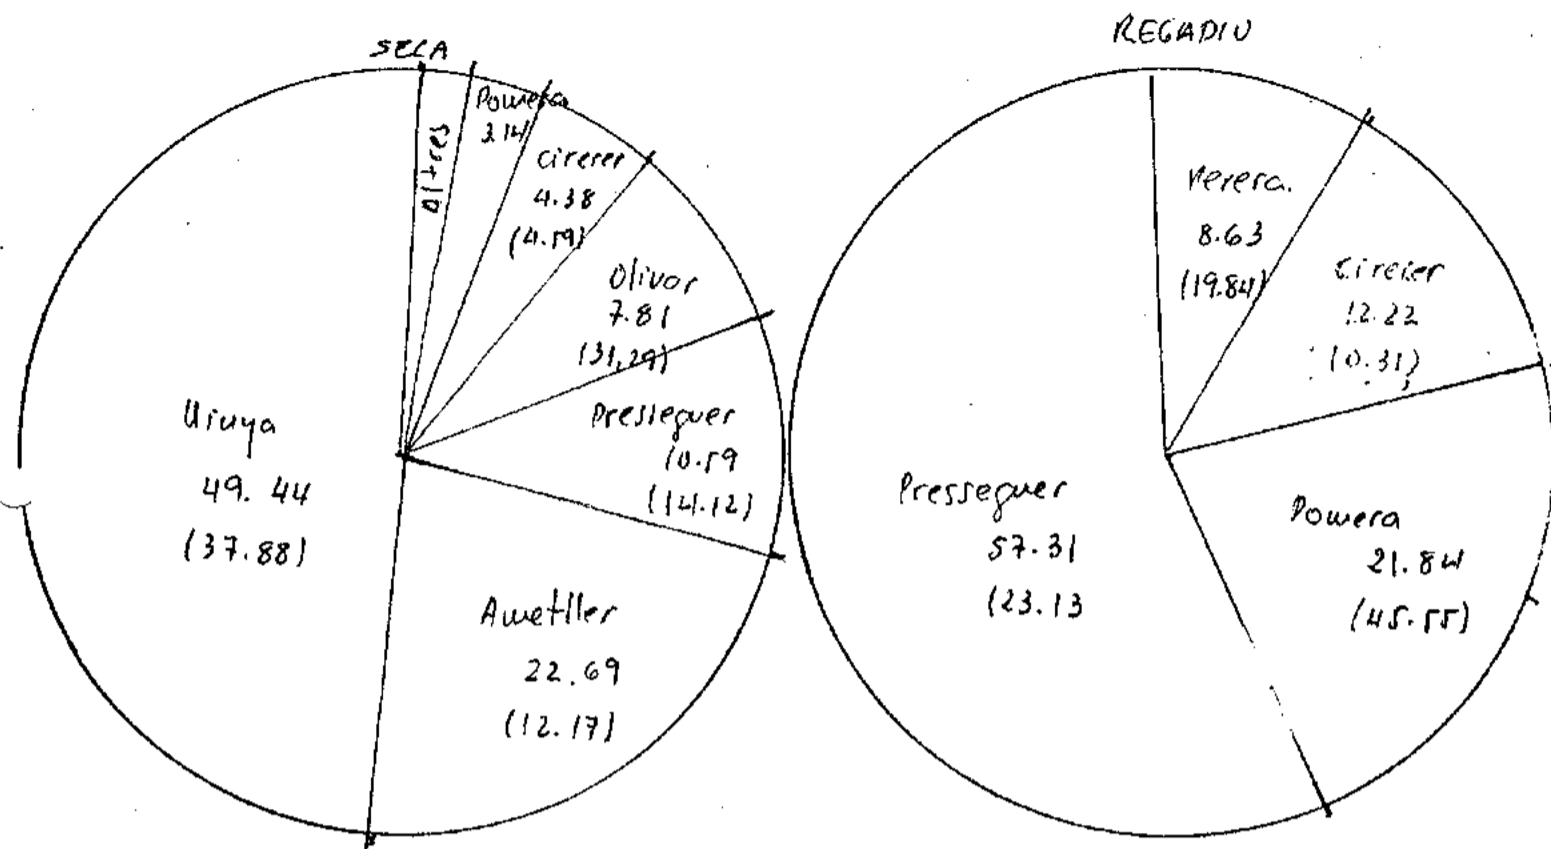 SECA
Altres
Pomera
3.14
Cirerer
4.38
(4.59)
Olivar
7.81
(31,29)
Presseguer
10.59
(14.12)
Ametller
22.69
(12.17)
Vinya
49.44
(37.88)
REGADIU
Perera.
8.63
(19.84)
Cirerer
12.22
(0.31)
Pomera
21.84
(45.55)
Presseguer
57.31
(23.13